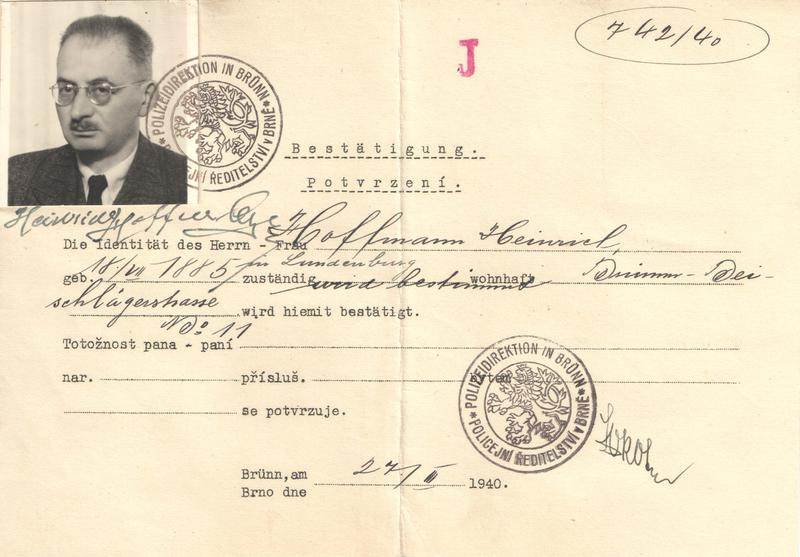 742/40
J
POLIZEIDIREKTION IN BRÜNN
POLICEJNÍ ŘEDITELSTVÍ V BRNĚ
Bestätigung.
Potvrzení.
Die Identität des Herrn - Frau Hoffmann Heinrich,
geb. 18/VII 1885 in Lundenburg zuständig wird bestimmt wohnhaft Brünn - Bei-
schlägerstrasse No 11 wird hiemit bestätigt.
Totožnost pana - paní
nar. přísluš. bytem
se potvrzuje.
POLIZEIDIREKTION IN BRÜNN
POLICEJNÍ ŘEDITELSTVÍ V BRNĚ
Brünn, am 27/II 1940.
Brno dne